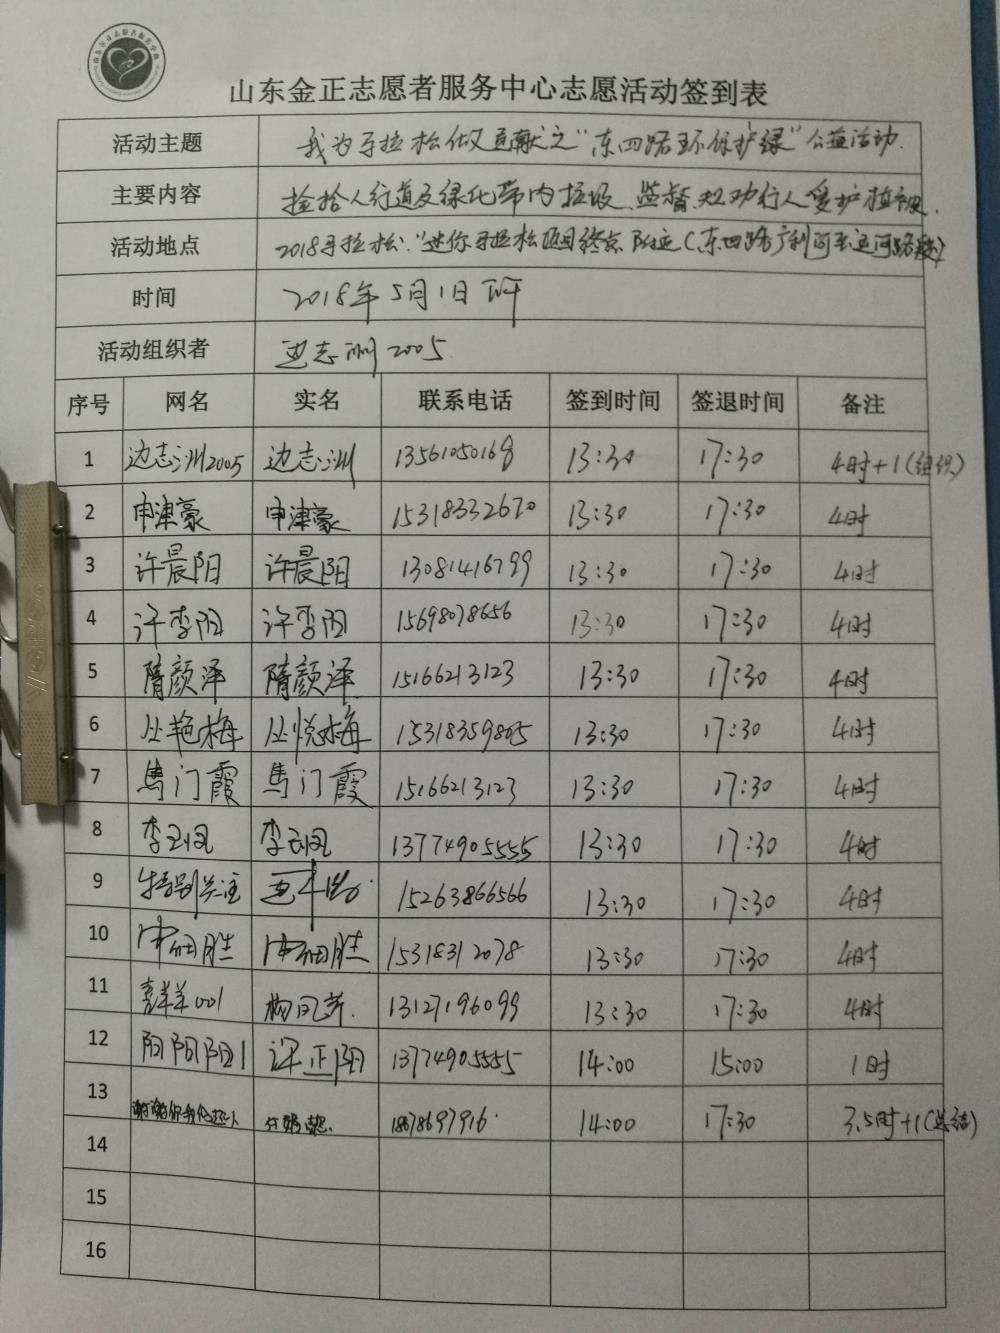 山东金正志愿者服务中心志愿活动签到表
活动主题 我为马拉松做贡献之"东四路环保护绿"公益活动.
主要内容 捡拾人行道及绿化带内垃圾、监督、规劝行人爱护植被.
活动地点 2018马拉松."迷你马拉松项目终点附近(东四路广利河至运河路段)
时间 2018年5月1日下午
活动组织者 边志洲2005.
序号 网名 实名 联系电话 签到时间 签退时间 备注
1 边志洲2005 边志洲 13561050168 13:30 17:30 4时+1(组织)
2 申津豪 申津豪 15318332670 13:30 17:30 4时
3 许晨阳 许晨阳 13081416799 13:30 17:30 4时
4 许李阳 许李阳 15698078656 13:30 17:30 4时
5 隋颜泽 隋颜泽 15166213123 13:30 17:30 4时
6 丛艳梅 丛悦梅 15318359805 13:30 17:30 4时
7 馬门霞 馬门霞 15166213123 13:30 17:30 4时
8 李玉凤 李玉凤 13774905555 13:30 17:30 4时
9 特别关注 15263866566 13:30 17:30 4时
10 胜 胜 15318312078 13:30 17:30 4时
11 喜羊羊001 13127196099 13:30 17:30 4时
12 阳阳阳1 许正阳 13774905555 14:00 15:00 1时
13 谢谢你 18678697916. 14:00 17:30 3.5时+1(总结)
14
15
16